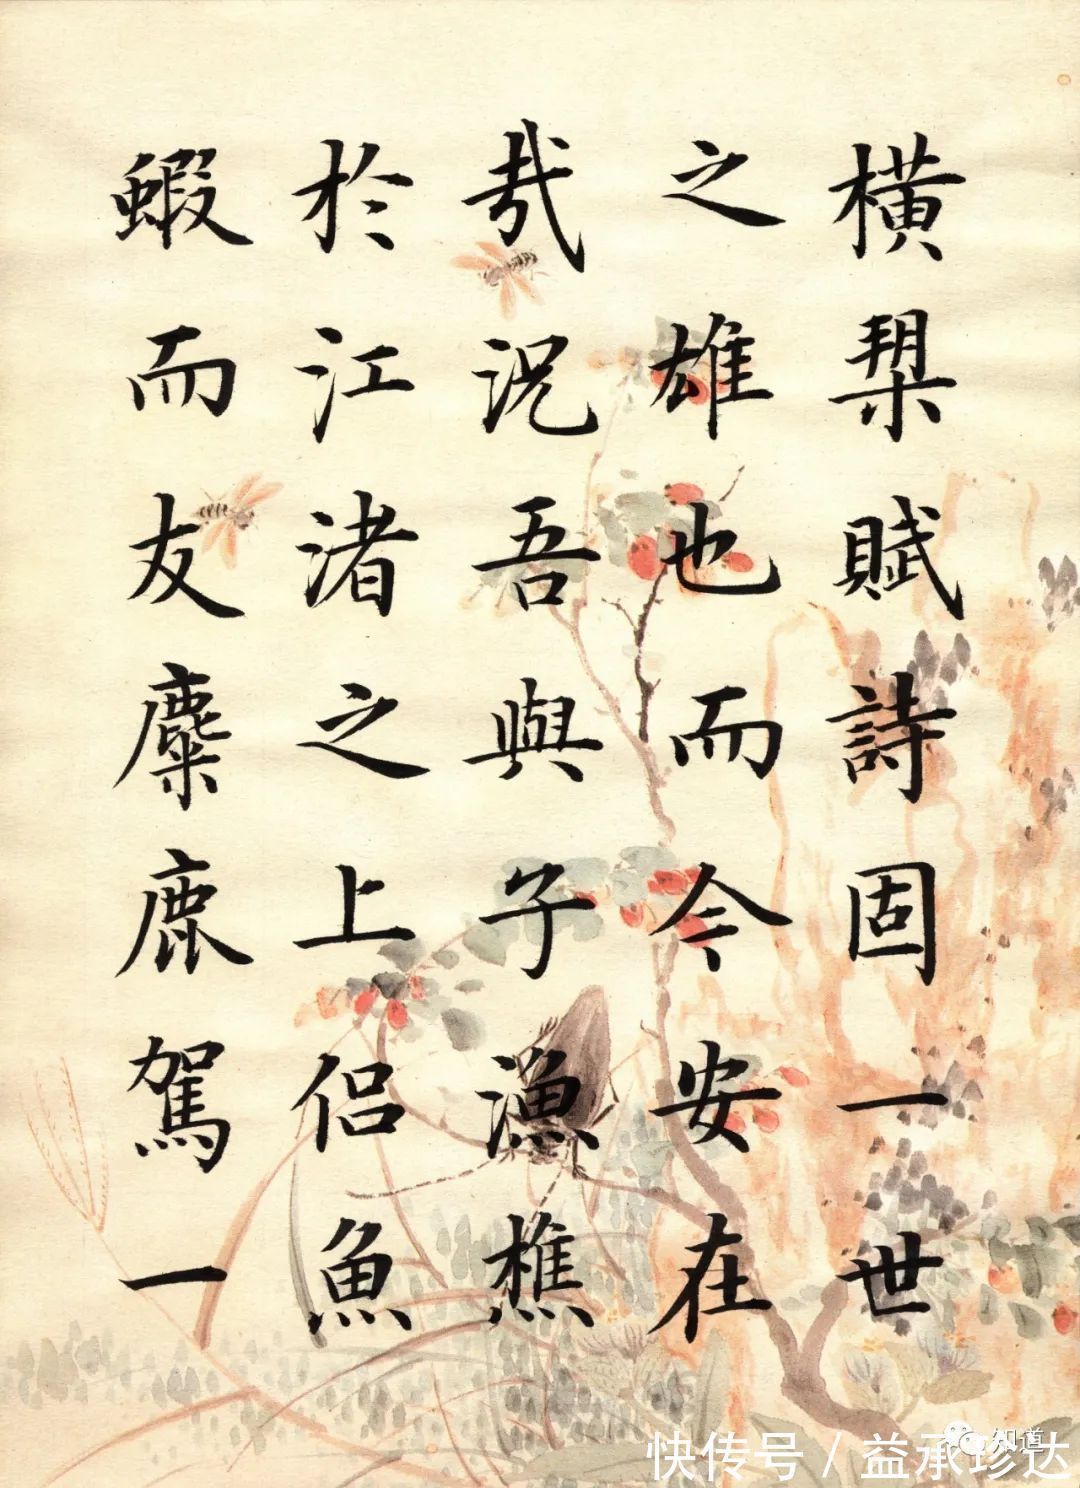 橫槊賦詩固一世
之雄也而今安在
哉況吾與子漁樵
於江渚之上侶魚
蝦而友麋鹿駕一
知道
快传号 / 益承珍达